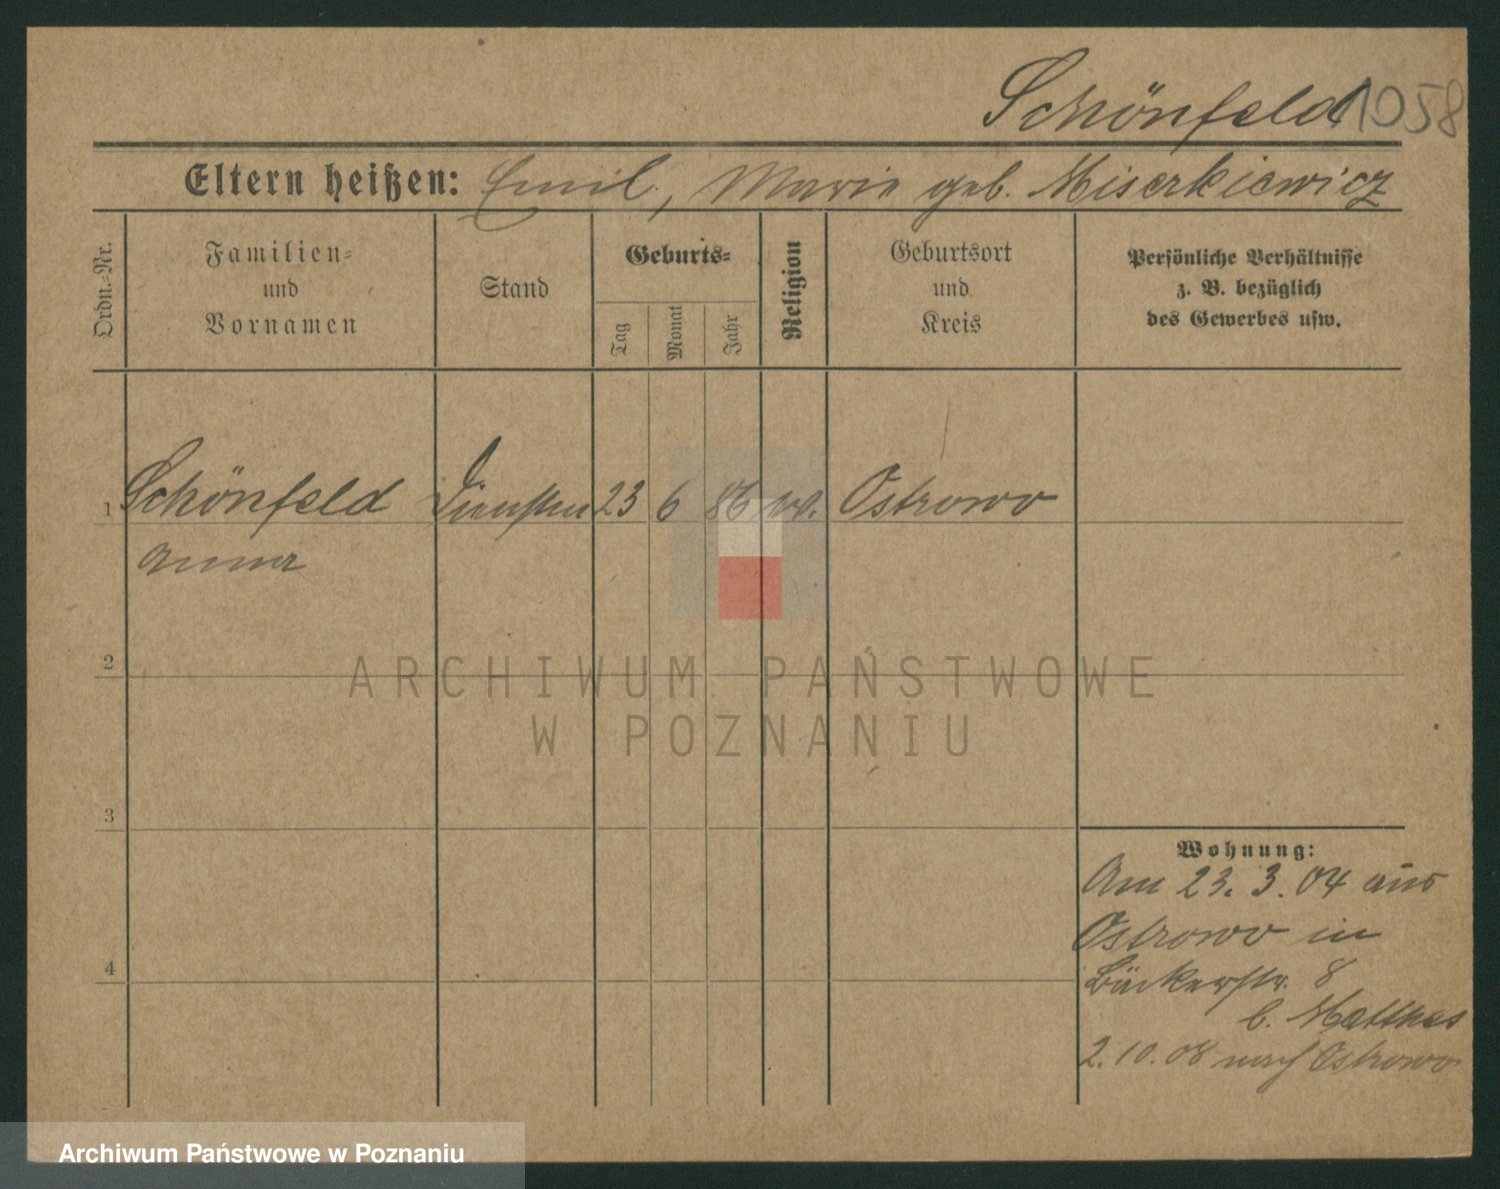 Schönfeld 1058
Eltern heißen: Emil, Marie geb. Miserkiewicz
Ordn.-Nr.
Familien-
und
Vornamen
Stand
Geburts-
Tag
Monat
Jahr
Religion
Geburtsort
und
Kreis
Persönliche Verhältnisse
z. B. bezüglich
des Gewerbes usw.
1 Schönfeld 23 6 86 Ostrowo
Anna
2
ARCHIWUM PAŃSTWOWE
W POZNANIU
3
Wohnung:
Am 23. 3. 04 aus
Ostrowo in
4
Bäckerstr. 8
b. Matthes
2. 10. 08 nach Ostrowo
Archiwum Państwowe w Poznaniu